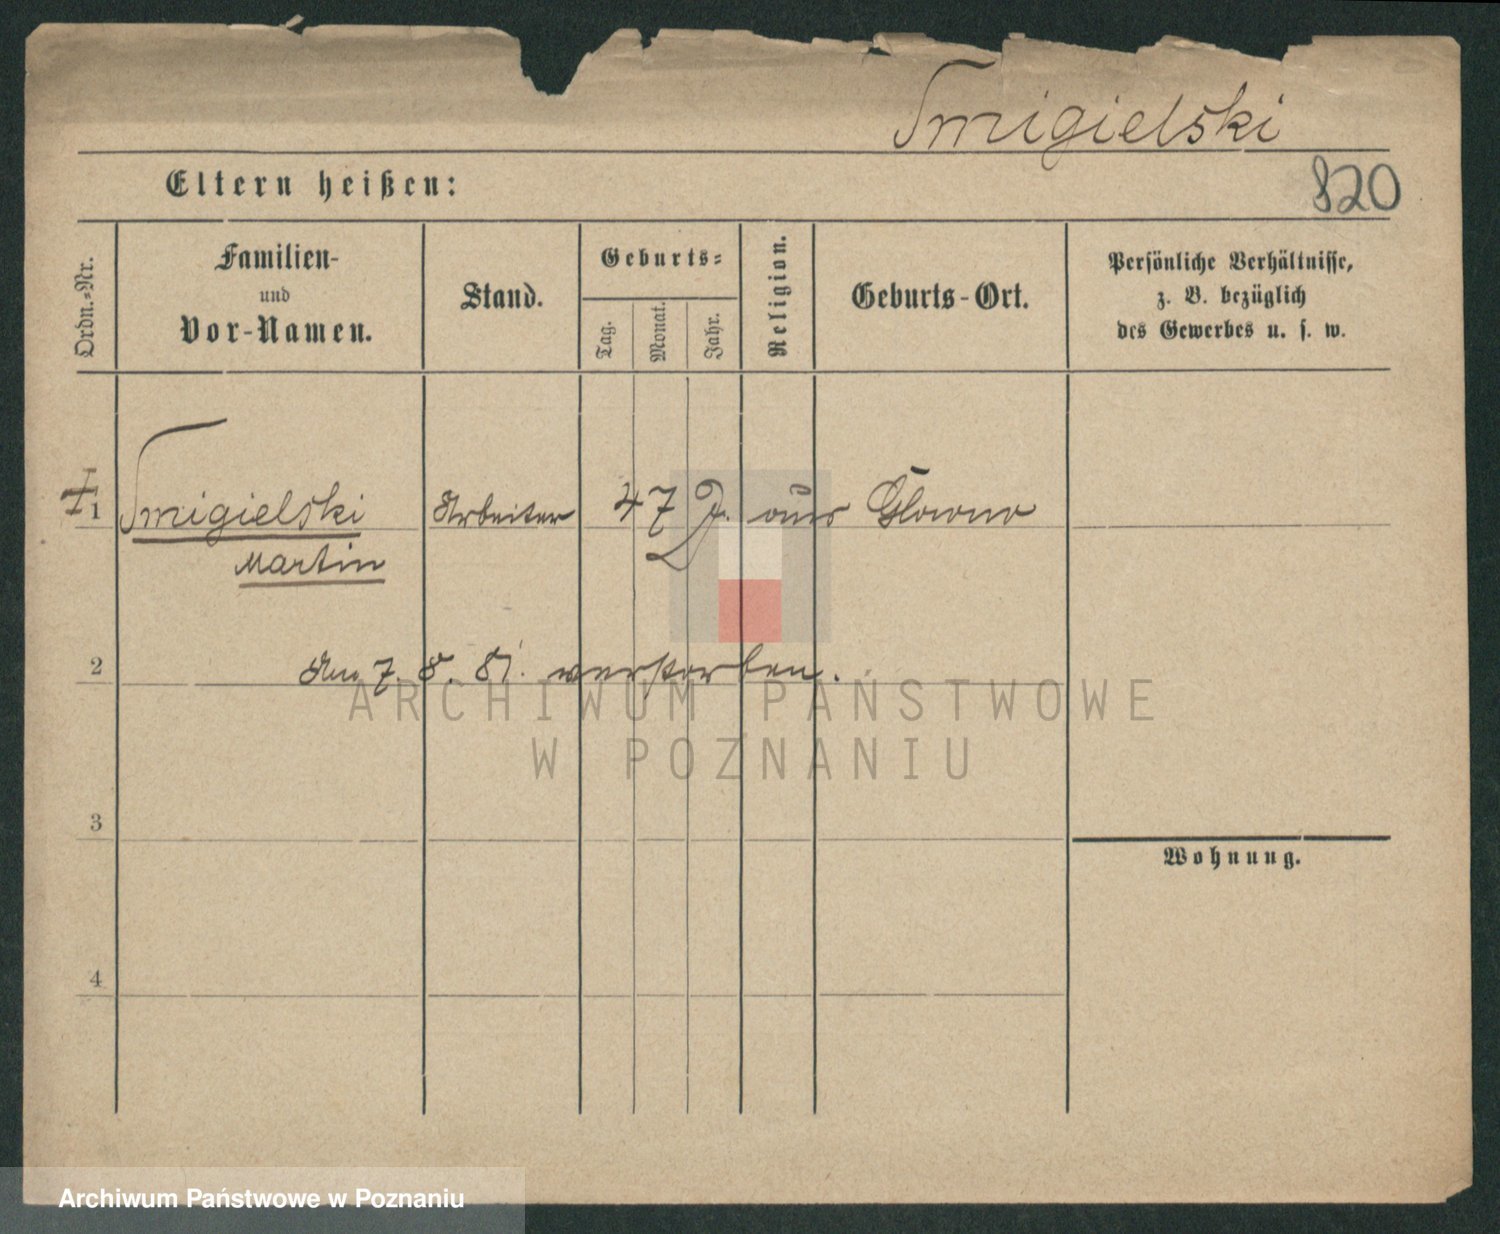 Smigielski
820
Eltern heißen:
Ordn.-Nr.
Familien-
und
Vor-Namen.
Stand.
Geburts-
Tag.
Monat.
Jahr.
Religion.
Geburts-Ort.
Persönliche Verhältnisse,
z. B. bezüglich
des Gewerbes u. s. w.
1 Smigielski Arbeiter 47 J. aus Glowno
Martin
2 Am 7. 8. 81. verstorben.
ARCHIWUM PAŃSTWOWE
W POZNANIU
3
Wohnung.
4
Archiwum Państwowe w Poznaniu